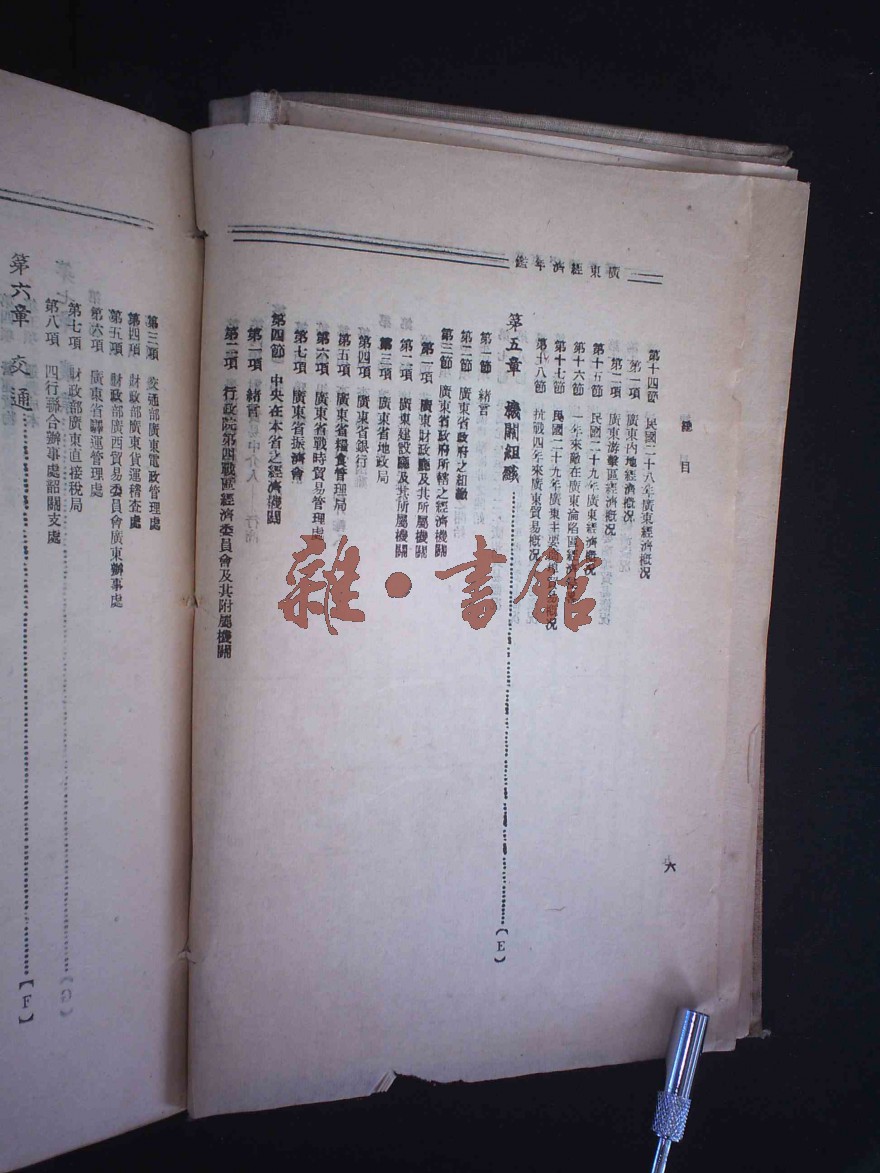 廣東經濟年鑑
目錄
六
第十四節 民國二十八年廣東經濟概況
第一項 廣東內地經濟概況
第二項 廣東游擊區經濟概況
第十五節 民國二十九年廣東經濟概況
第十六節 一年來敵在廣東淪陷區經濟
第十七節 民國二十九年廣東主要
概況
第十八節 抗戰四年來廣東貿易概況
第五章 機關組織【E】
第一節 緒言
第二節 廣東省政府之組織
第三節 廣東省政府所轄之經濟機關
第一項 廣東財政廳及其所屬機關
第二項 廣東建設廳及其所屬機關
第三項 廣東省地政局
第四項 廣東省銀行
第五項 廣東省糧食管理局
第六項 廣東省戰時貿易管理處
第七項 廣東省振濟會
第四節 中央在本省之經濟機關
第一項 緒言
第二項 行政院第四戰區經濟委員會及其附屬機關
第三項 交通部廣東電政管理處
第四項 財政部廣東貨運稽查處
第五項 財政部廣西貿易委員會廣東辦事處
第六項 廣東省驛運管理處
第七項 財政部廣東直接稅局
第八項 四行聯合辦事處韶關支處
第六章 交通【F】
雜·書館